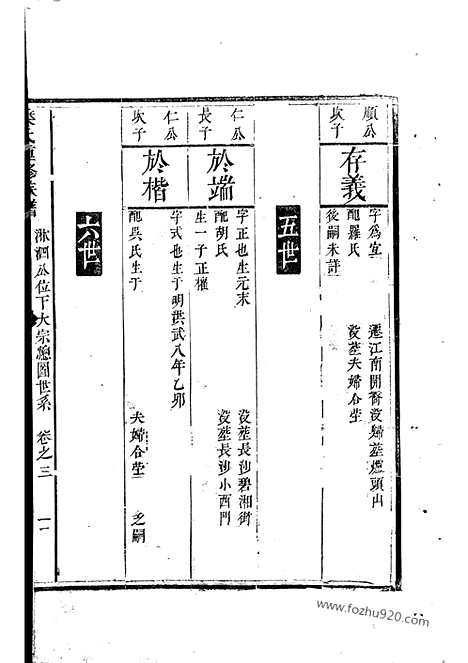 順公
次子
存義
字爲宜
配羅氏
後嗣未詳
遷江南開喬没歸葬煙頭山
没葬夫婦合塋
五世
仁公
長子
於端
字正也生元末
配胡氏
生一子正權
没葬長沙碧湘街
没葬長沙小西門
仁公
次子
於楷
字式也生于明洪武八年乙卯
配吳氏生于
夫婦合塋
乏嗣
六世
氏重修族譜
洙泗公位下大宗總圖世系
卷之三
www.fozhu920.com